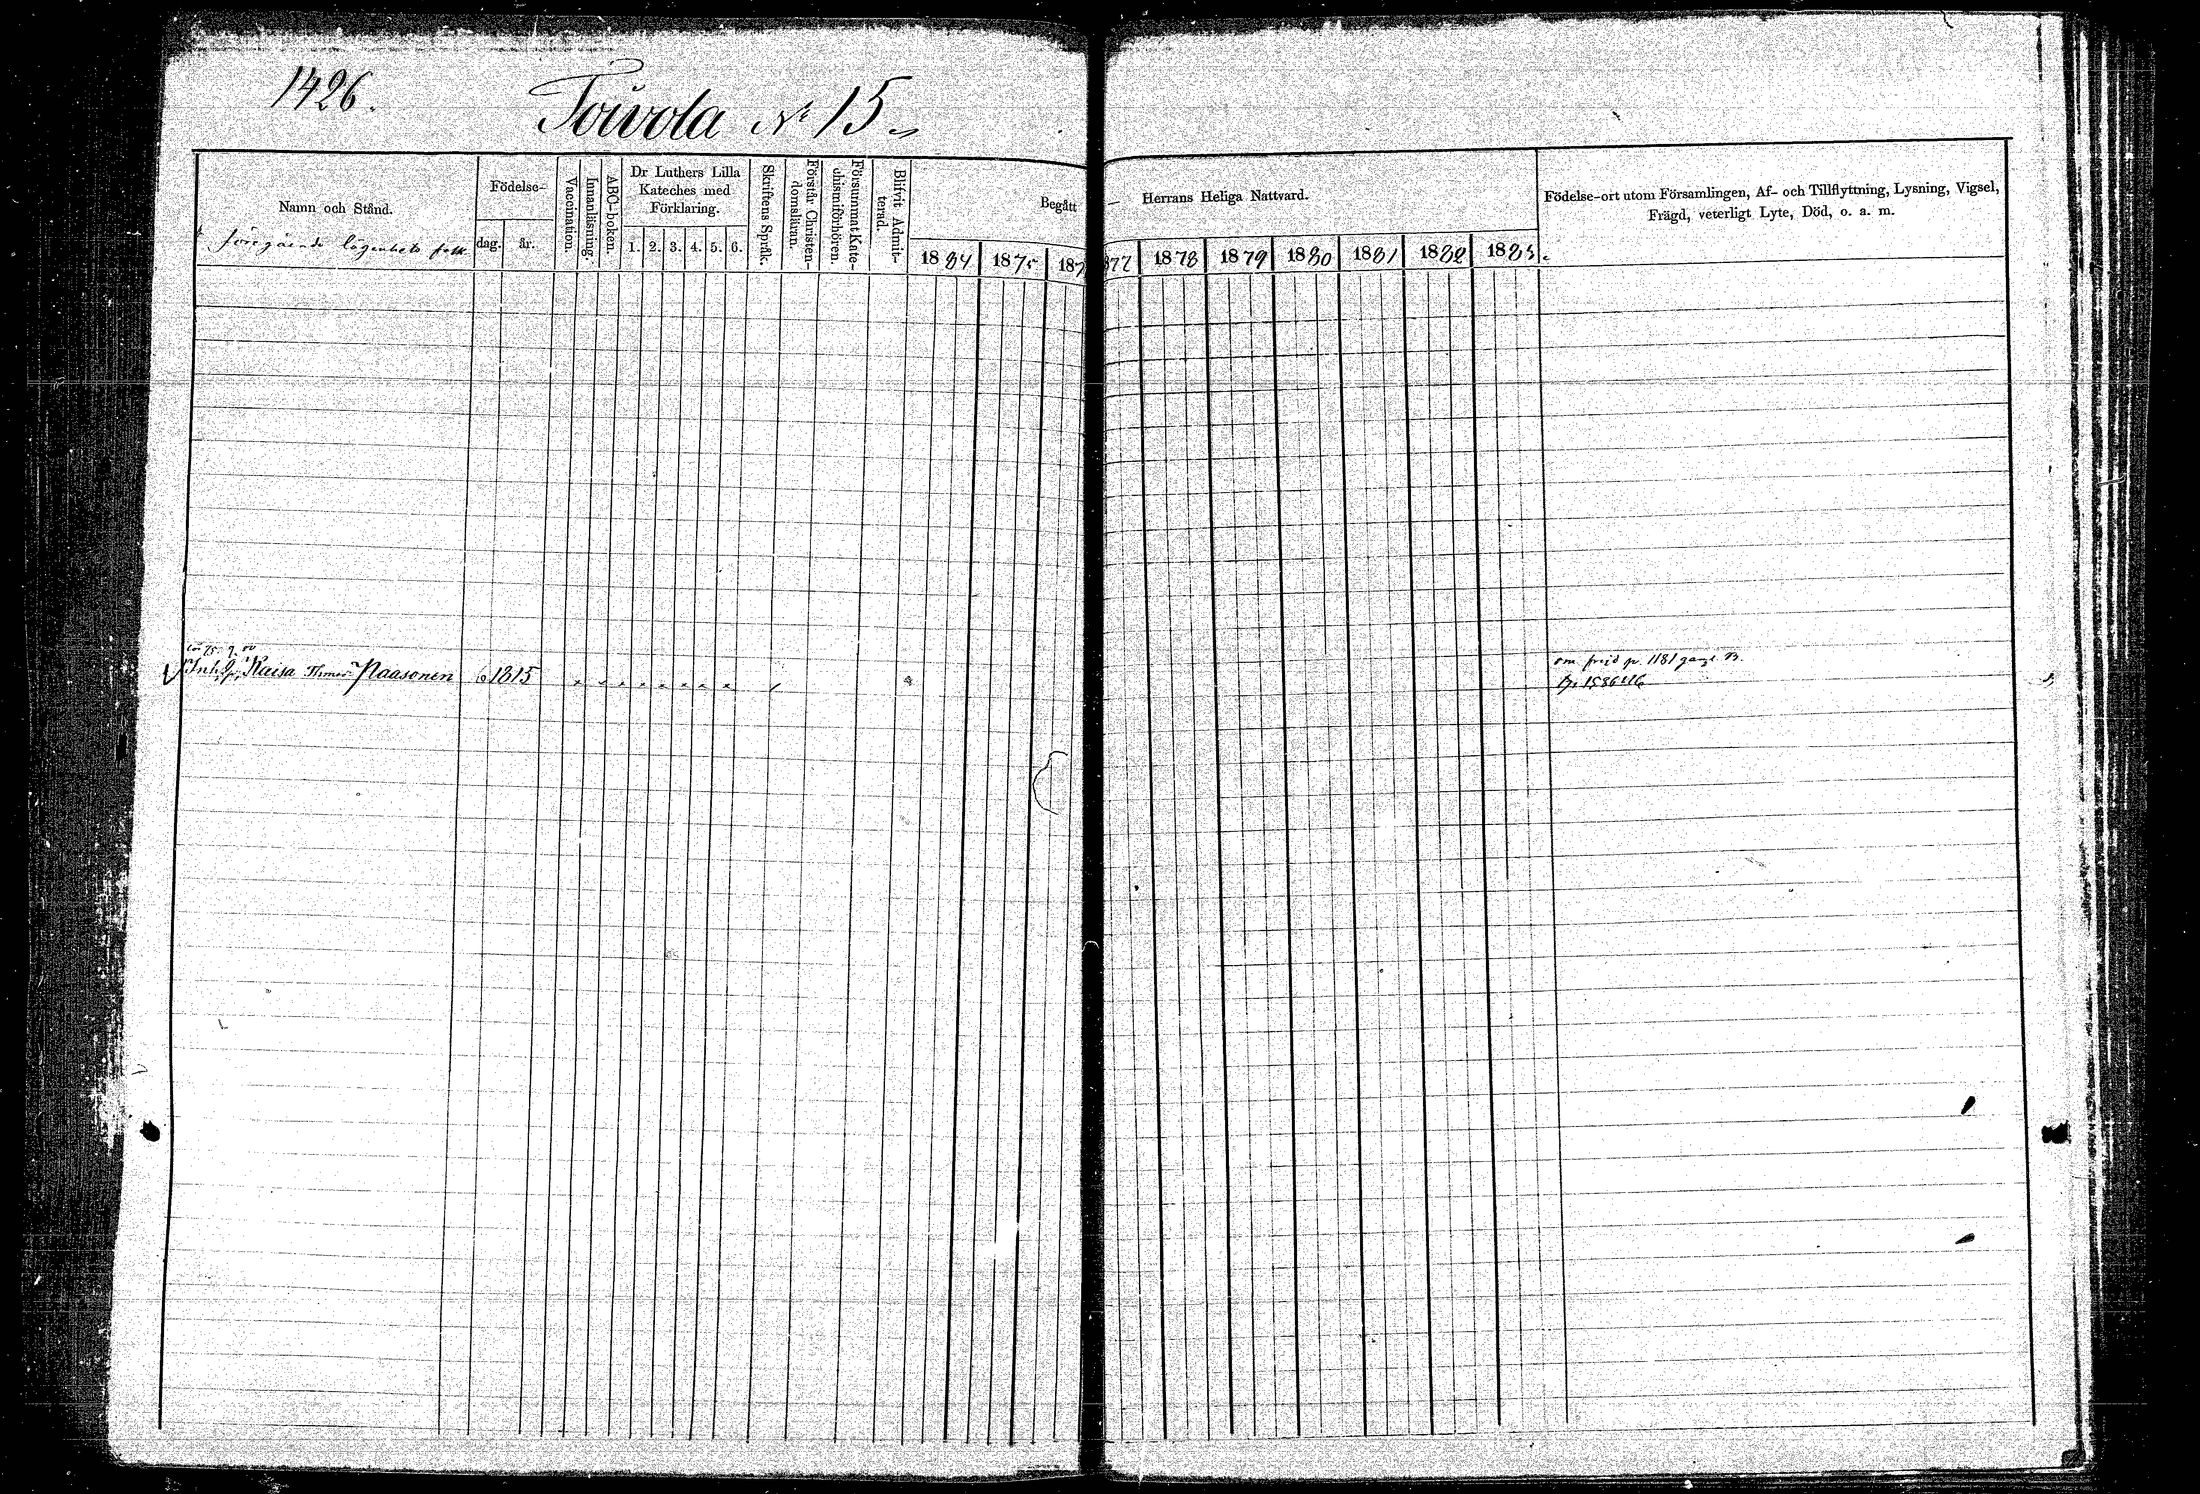 1426.
Toivola No 15
Namn och Stånd.
föregående lägenhets folk
Födelse-
dag.
år.
Vaccination.
Innanläsning.
ABC-boken.
Dr Luthers Lilla
Kateches med
Förklaring.
1. 2. 3. 4. 5. 6.
Skriftens Språk.
Förstår Christen-
domsläran.
Försummat Kate-
chismiförhören.
Blifvit Admit-
terad.
Begått
Herrans Heliga Nattvard.
1884 1875 187 877 1878 1879 1880 1881 1882 1883
Födelse-ort utom Församlingen, Af- och Tillflyttning, Lysning, Vigsel,
Frägd, veterligt Lyte, Död, o. a. m.
Inh. Raisa Paasonen 6 1815
om frejd p. 1181